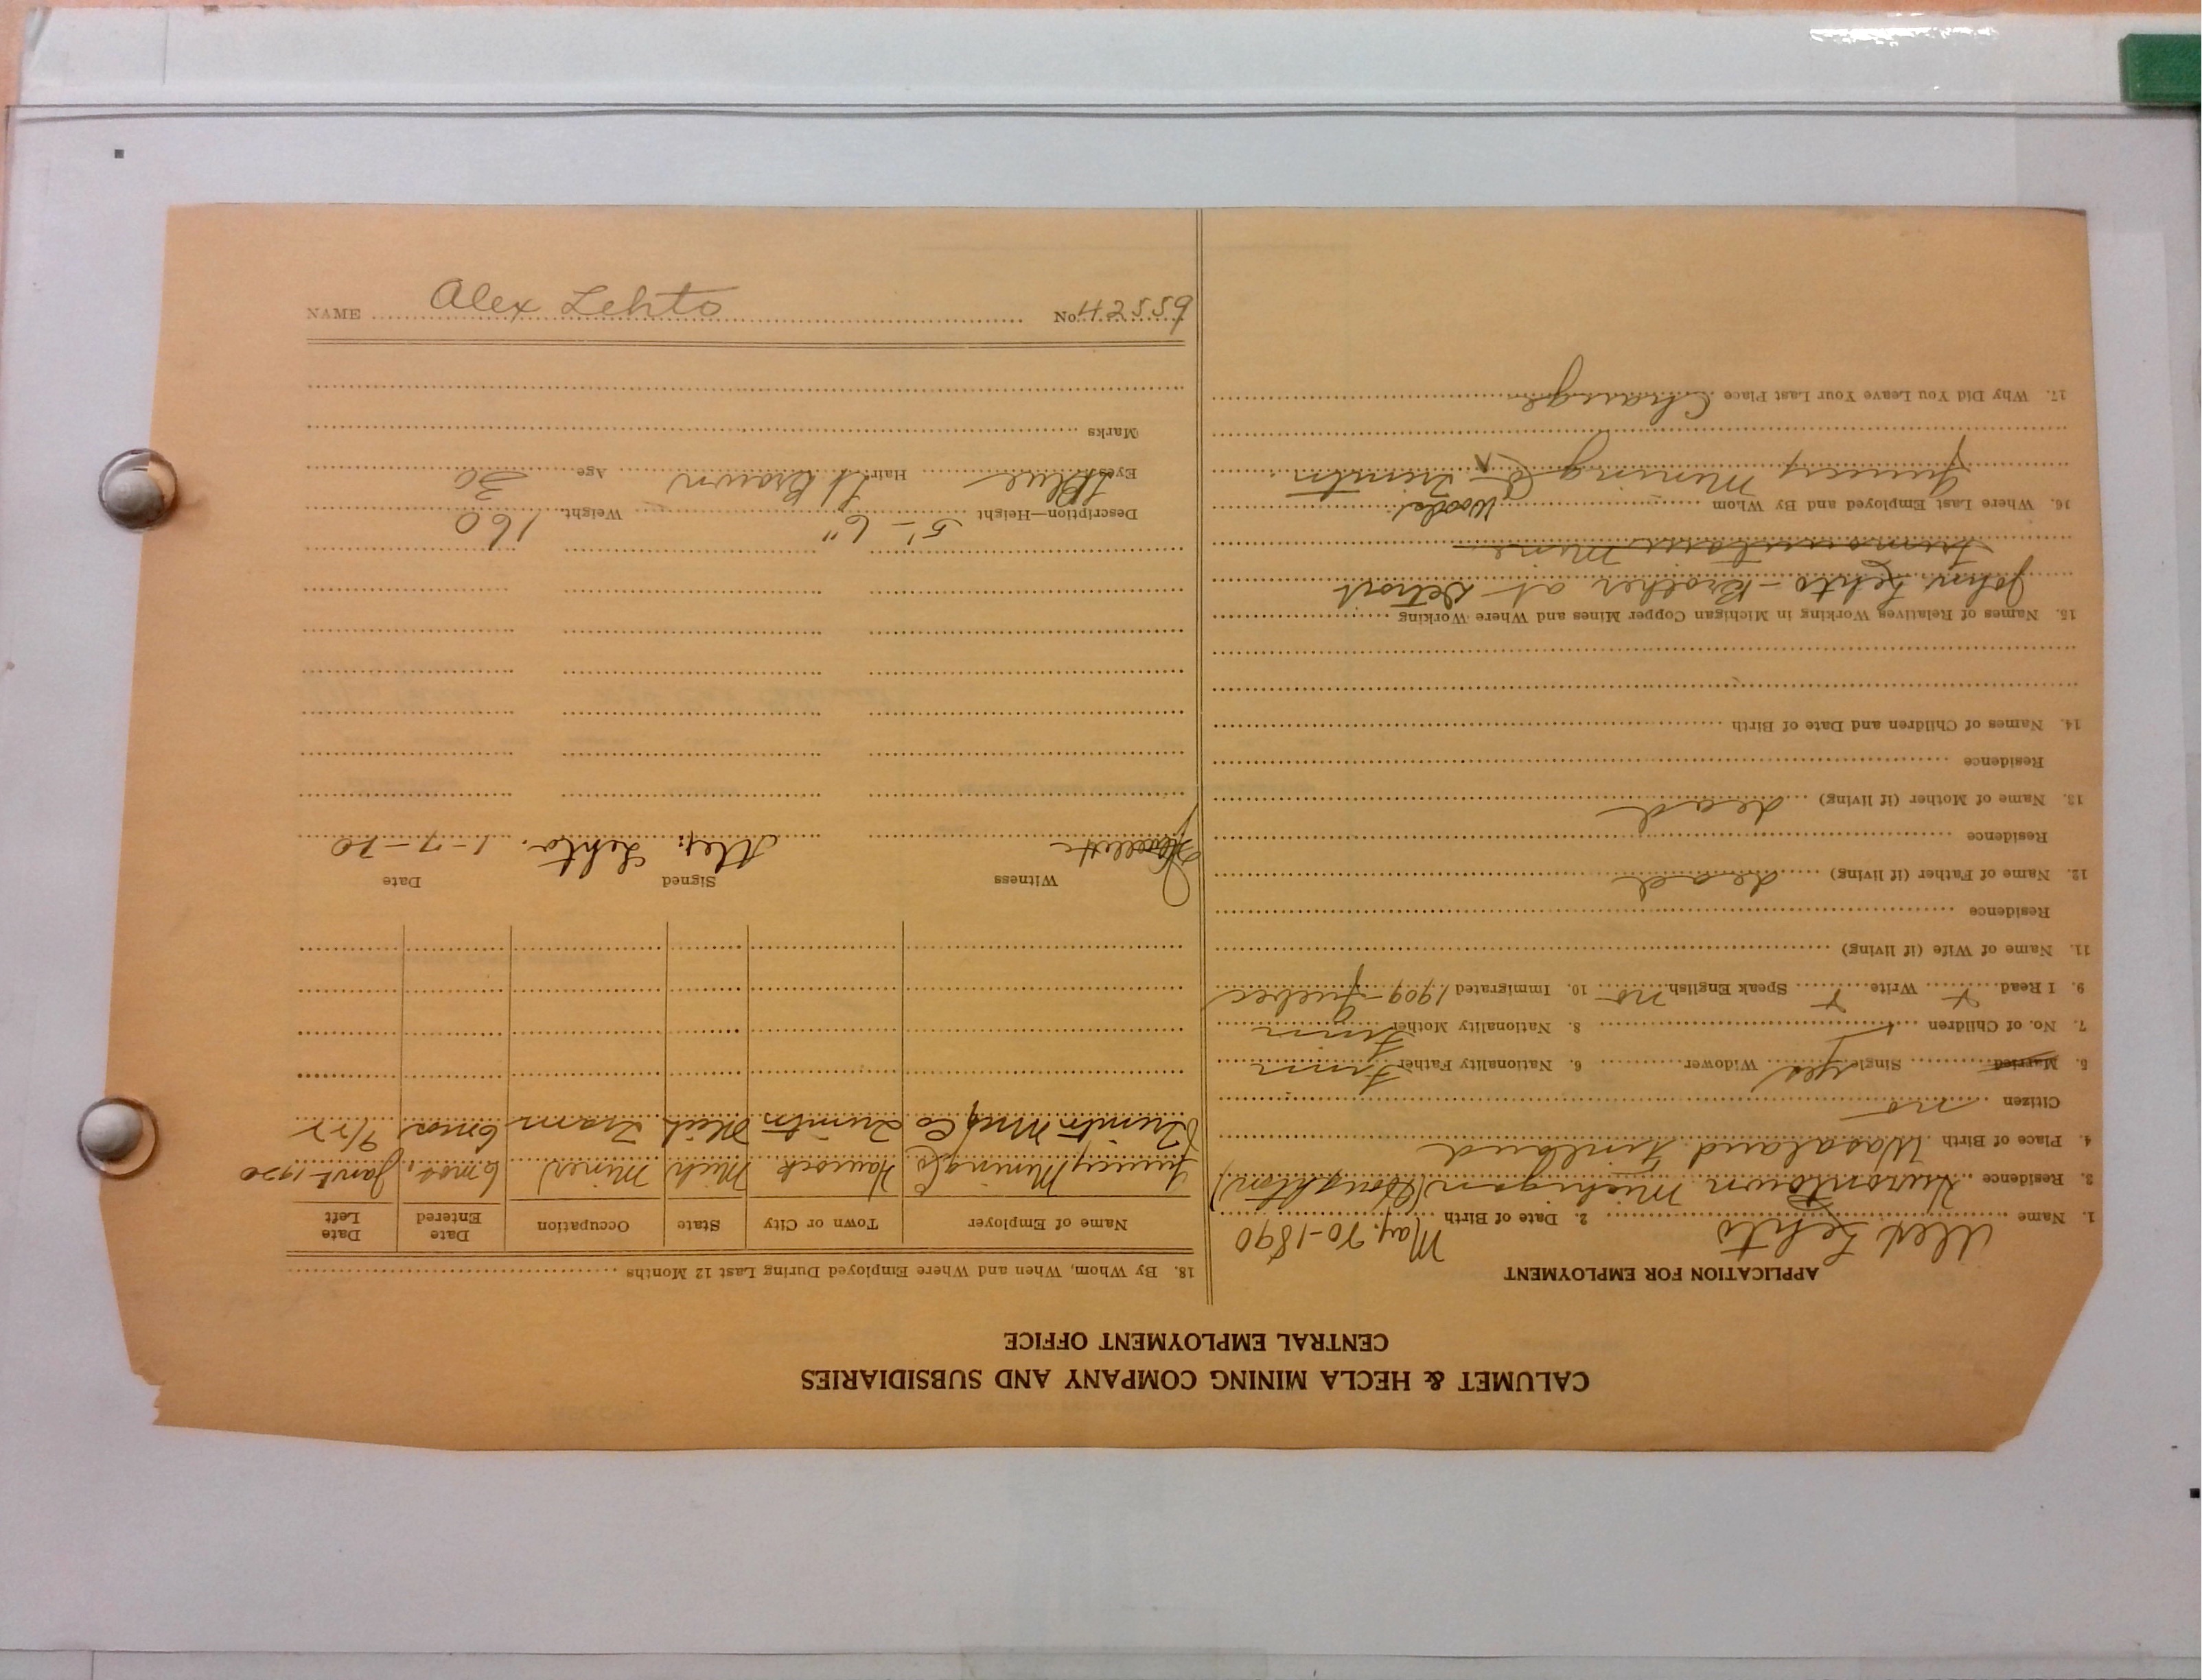 CALUMET & HECLA MINING COMPANY AND SUBSIDIARIES
CENTRAL EMPLOYMENT OFFICE
APPLICATION FOR EMPLOYMENT
1. Name Alex Lehto 2. Date of Birth May. 20-1890
3. Residence Hurontown Michigan (Houghton)
4. Place of Birth Wasaland Finland
Citizen no
5. Married Single yes Widower 6. Nationality Father Finn
7. No. of Children 8. Nationality Mother Finn
9. I Read + Write + Speak English no 10. Immigrated 1909-Quebec
11. Name of Wife (if living)
Residence
12. Name of Father (if living) dead
Residence
13. Name of Mother (if living) dead
Residence
14. Names of Children and Date of Birth
15. Names of Relatives Working in Michigan Copper Mines and Where Working
John Lehto - Brother at Detroit
Mine
16. Where Last Employed and By Whom
Quincy Mining Co Woods Trimtn
17. Why Did You Leave Your Last Place Change
18. By Whom, When and Where Employed During Last 12 Months
Name of Employer Town or City State Occupation Date Entered Date Left
Quincy Mining Co Hancock Mich Miner 6 mos. Jan 1 1920
Mfg Co Mich Tram 6 mos 9/22
Witness Signed Date
Alex. Lehto. 1-7-20
Description—Height 5'-6" Weight 160
Eyes Blue Hair Lt Brown Age 30
Marks
NAME Alex Lehto No. 42559